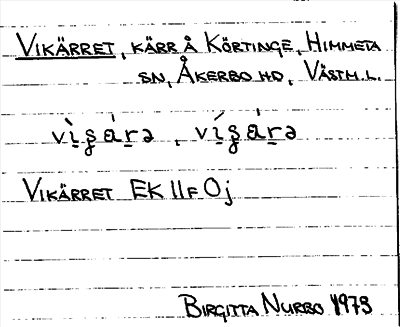 VIKÄRRET, KÄRR Å KÖRTINGE, HIMMETA
SN, ÅKERBO HD, VÄSTM.L.
vìʂáṟə , víʂàṟə
VIKÄRRET EK 11F 0j
BIRGITTA NURBO 1973